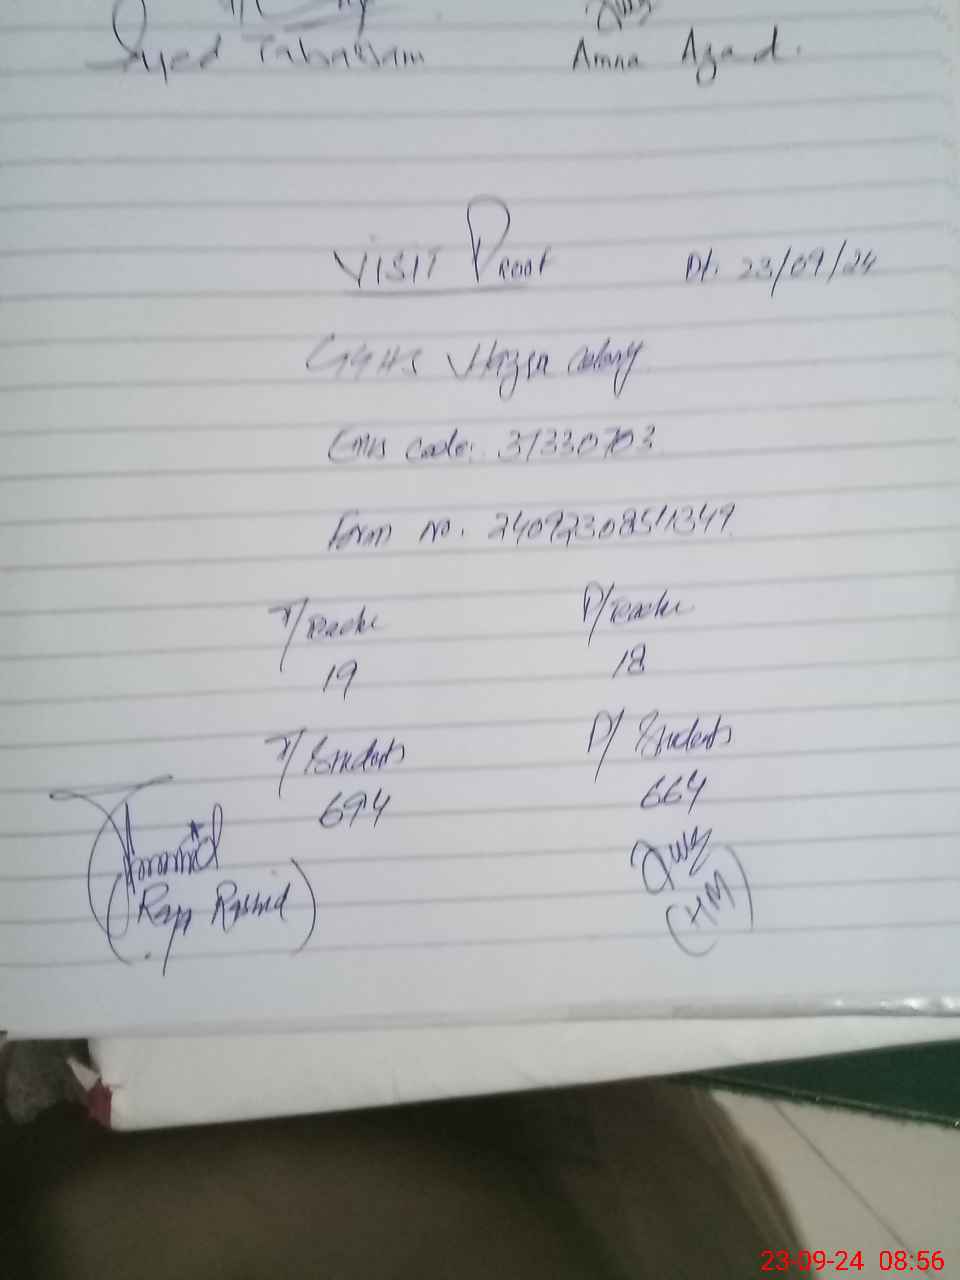 Syed Tabassam Amna Azad.
VISIT Proof Dt. 23/09/24
GGHS Hazara Colony
Emis code: 37330703
Form no. 2409230851349
T/Teache P/Teache
19 18
T/Students P/Students
694 664
(Raja Rashid) (HM)
23-09-24 08:56